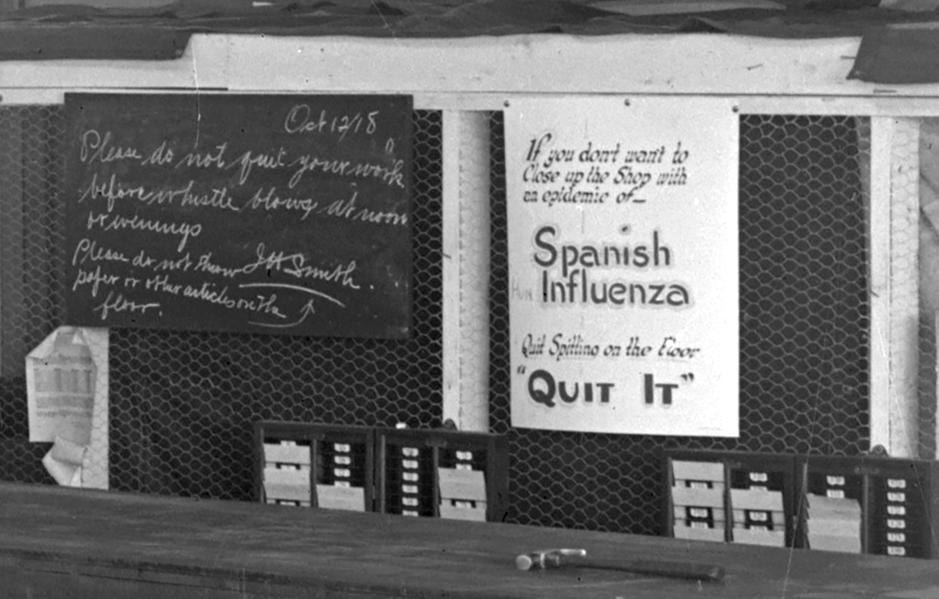 Oct 12/18
Please do not quit your work
before whistle blows at noon
or evenings
Please do not throw
paper or other articles on the
floor.
JH Smith.
If you don't want to
Close up the Shop with
an epidemic of—
Spanish
Influenza
Quit Spitting on the Floor
"QUIT IT"